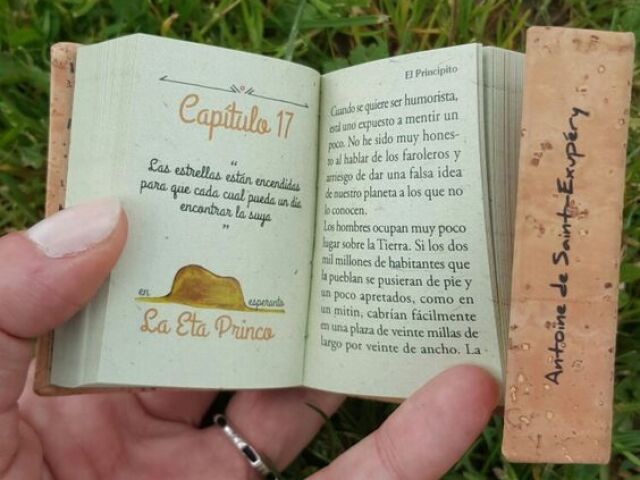 Capítulo 17
“
Las estrellas están encendidas
para que cada cual pueda un día
encontrar la suya
”
en esperanto
La Eta Princo
El Principito
Cuando se quiere ser humorista,
está uno expuesto a mentir un
poco. No he sido muy hones-
to al hablar de los faroleros y
arriesgo de dar una falsa idea
de nuestro planeta a los que no
lo conocen.
Los hombres ocupan muy poco
lugar sobre la Tierra. Si los dos
mil millones de habitantes que
la pueblan se pusieran de pie y
un poco apretados, como en
un mitin, cabrían fácilmente
en una plaza de veinte millas de
largo por veinte de ancho. La
Antoine de Saint-Exupéry